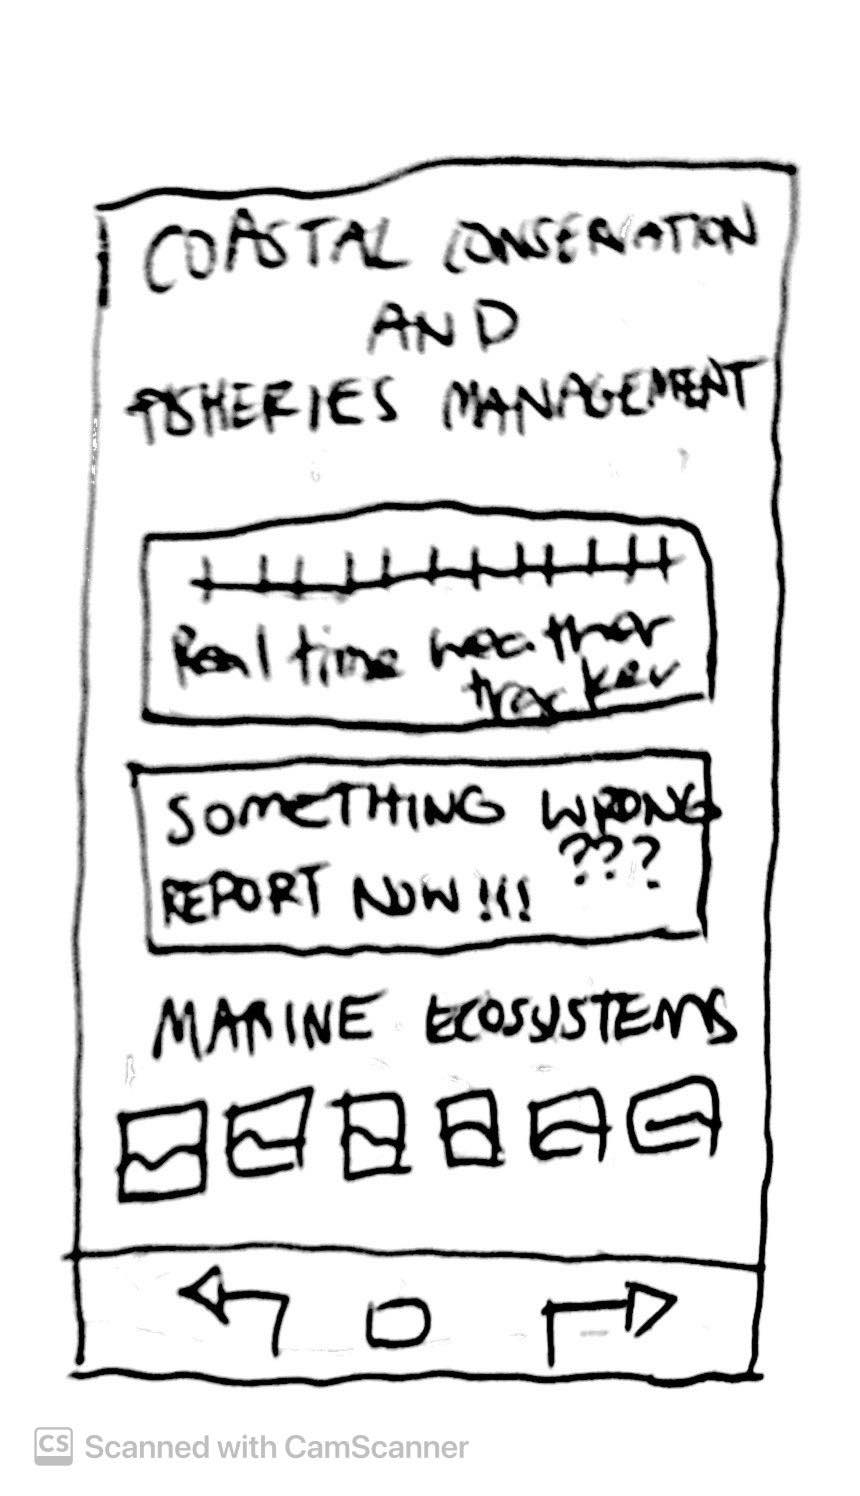 COASTAL CONSERVATION
AND
FISHERIES MANAGEMENT
Real time weather
tracker
SOMETHING WRONG
???
REPORT NOW!!!
MARINE ECOSYSTEMS
CS Scanned with CamScanner